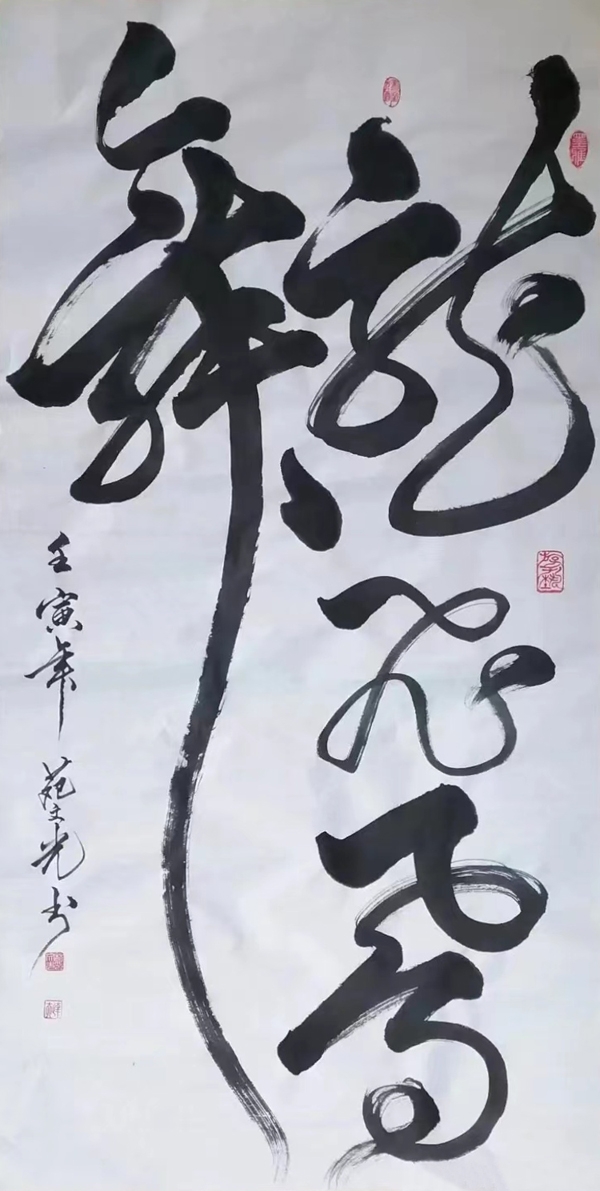 龍飛鳳
舞
壬寅年 苑文光书